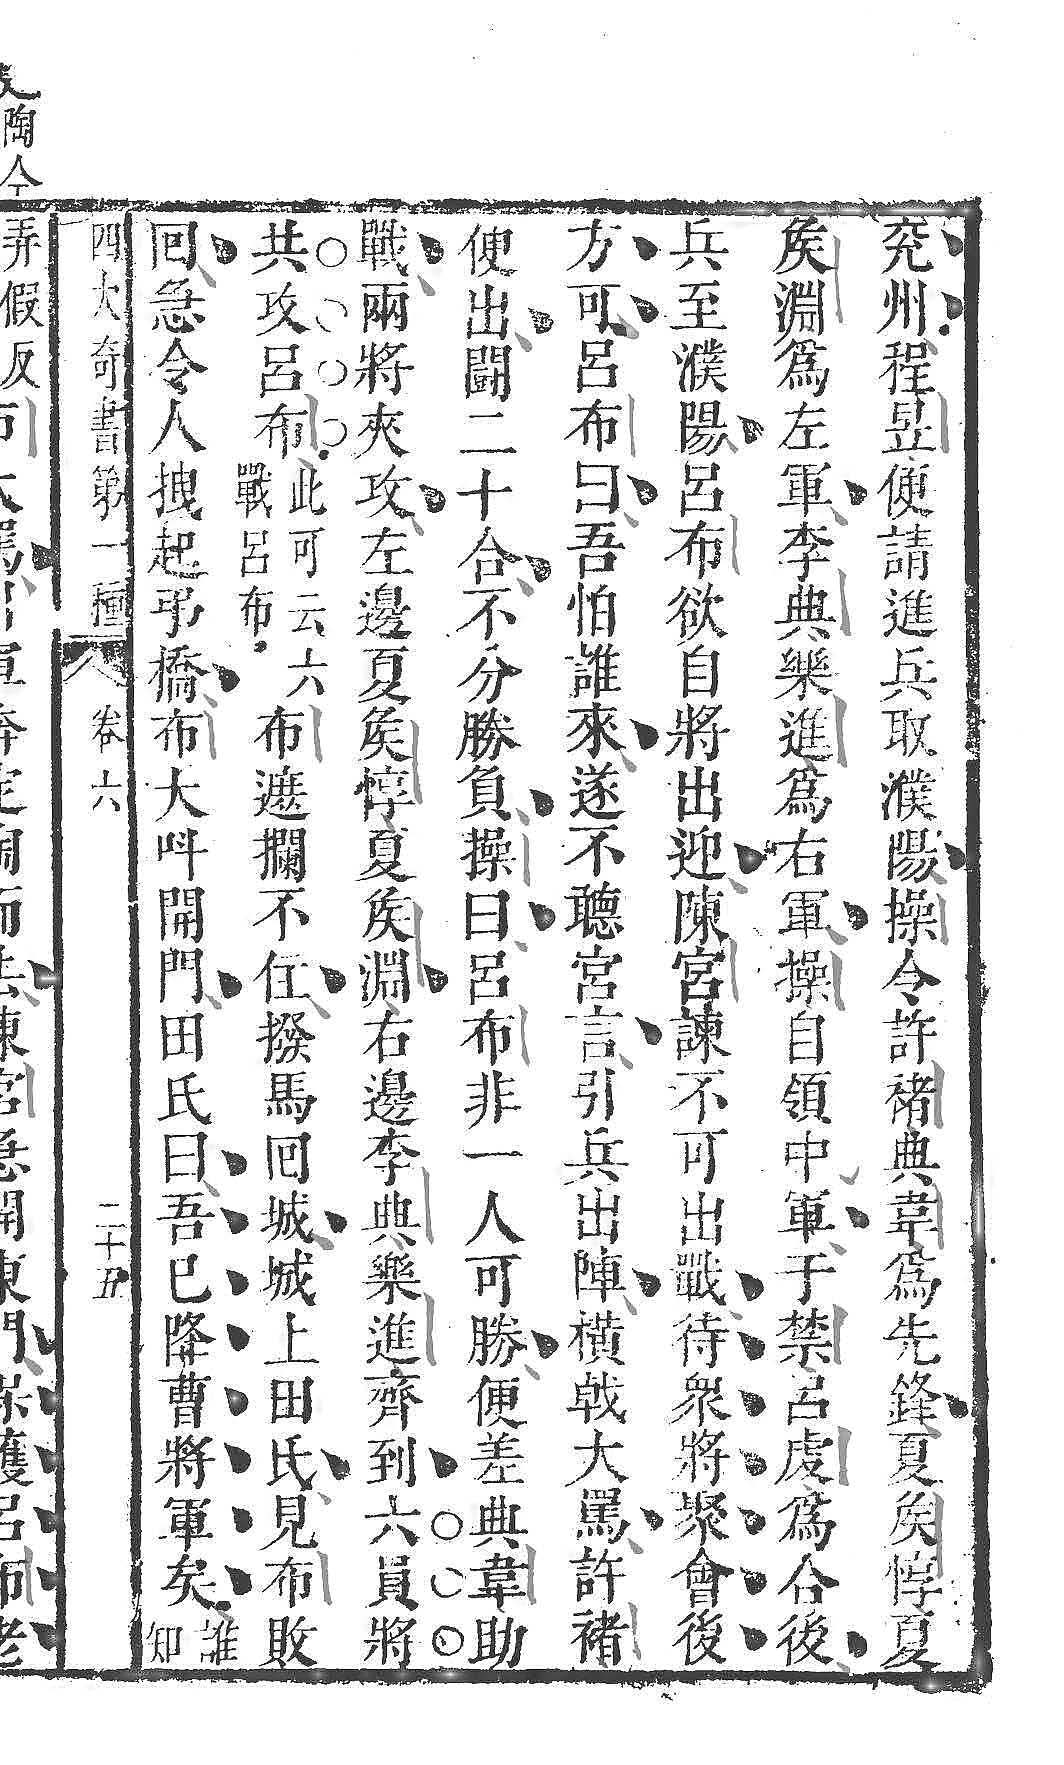 兖州程昱便請進兵取濮陽操令許褚典韋爲先鋒夏矦惇夏
矦淵爲左軍李典樂進爲右軍操自領中軍于禁呂虔爲合後
兵至濮陽呂布欲自將出迎陳宮諫不可出戰待衆將聚會後
方可呂布曰吾怕誰來遂不聽宮言引兵出陣橫戟大罵許褚
便出鬪二十合不分勝負操曰呂布非一人可勝便差典韋助
戰兩將夾攻左邊夏矦惇夏矦淵右邊李典樂進齊到六員將
共攻呂布此可云六戰呂布布遮攔不住撥馬囘城城上田氏見布敗
囘急令人拽起弔橋布大呌開門田氏曰吾已降曹將軍矣誰知
四大奇書第一種 卷六 二十五
陶令
弄假反布大罵引軍奔定陶而去陳宮急開東門保護呂布老